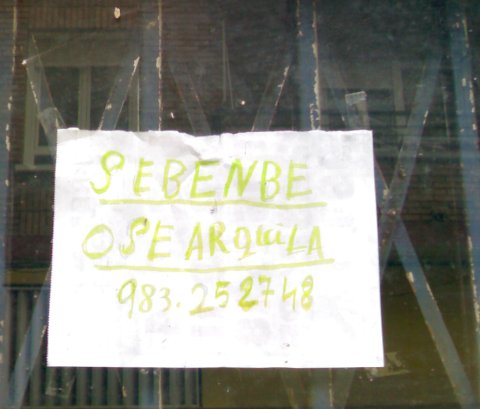 SEBENBE
OSEARQUILA
983.252748